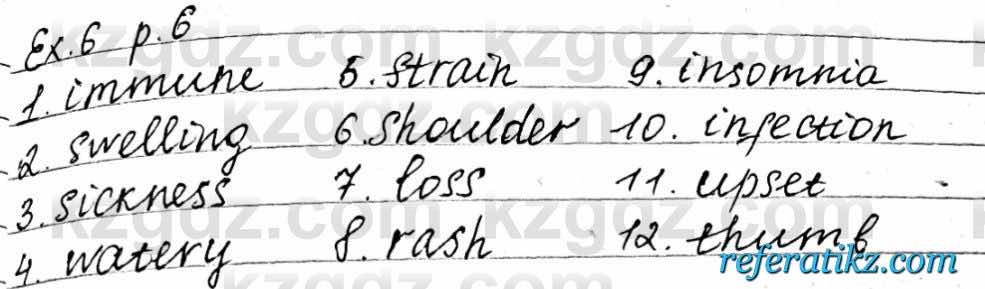 Ex.6 p.6
1. immune 5. strain 9. insomnia
2. swelling 6. shoulder 10. infection
3. sickness 7. loss 11. upset
4. watery 8. rash 12. thumb
kzgdz.com
referatikz.com